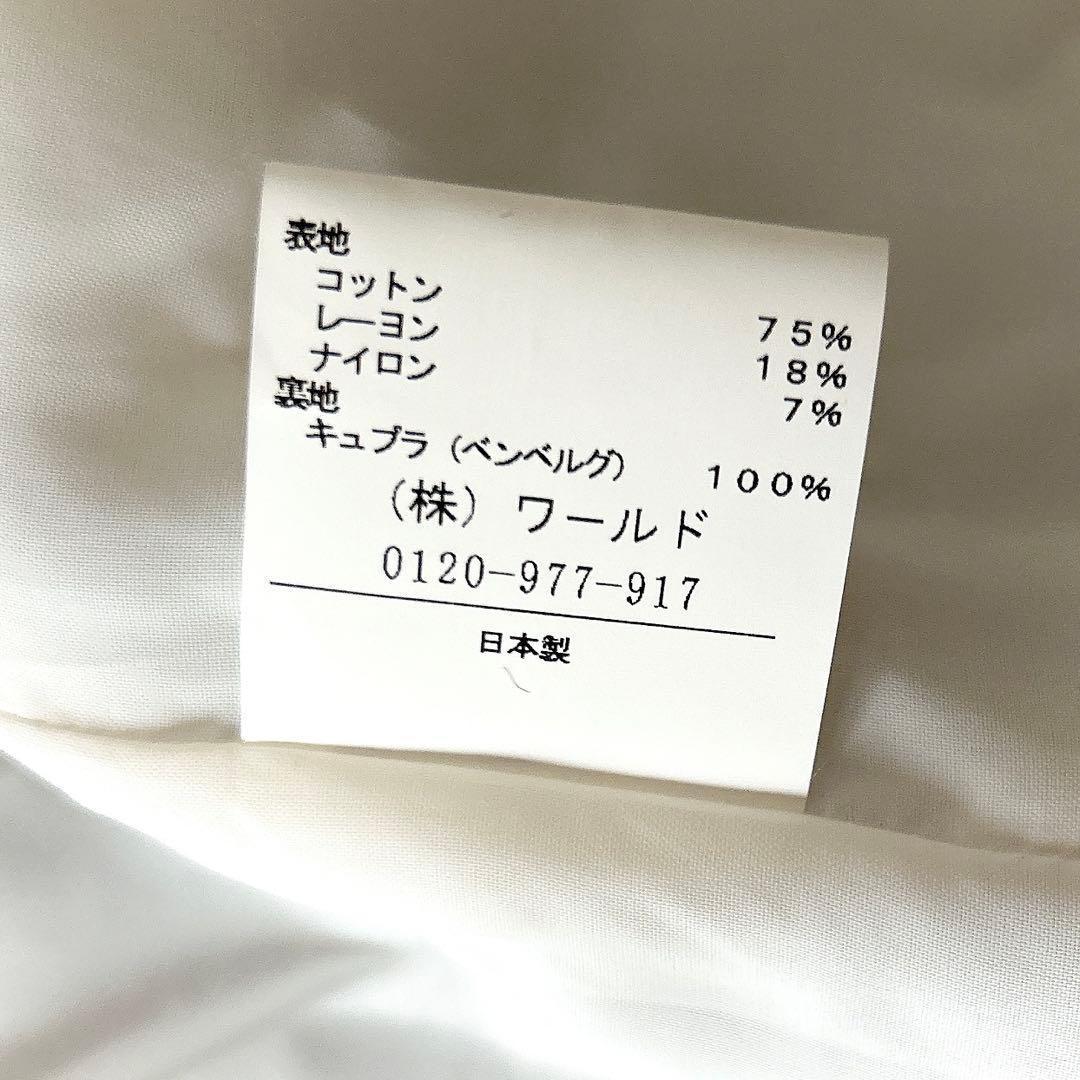 表地
コットン 75%
レーヨン 18%
ナイロン 7%
裏地
キュプラ（ベンベルグ） 100%
（株）ワールド
0120-977-917
日本製